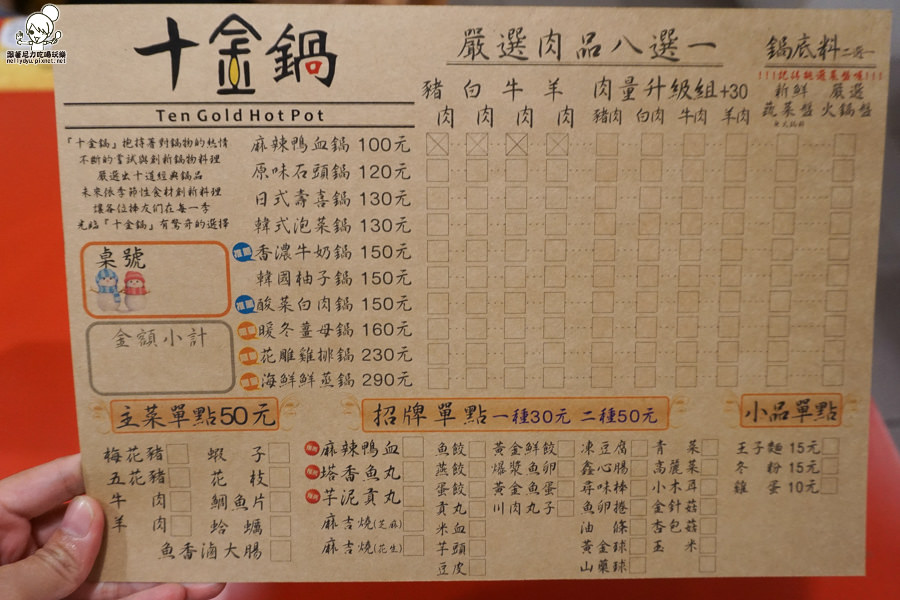 跟著尼力吃喝玩樂
nellydyu.pixnet.net
十金鍋
Ten Gold Hot Pot
『十金鍋』抱持著對鍋物的熱情
不斷的嘗試與創新鍋物料理
嚴選出十道經典鍋品
未來依季節性食材創新料理
讓各位捧友們在每一季
光臨『十金鍋』有驚奇的選擇
桌號
金額小計
嚴選肉品八選一
鍋底料二選一
!!!記得挑選菜盤哦!!!
豬肉 白肉 牛肉 羊肉
肉量升級組+30
豬肉 白肉 牛肉 羊肉
新鮮蔬菜盤
嚴選火鍋盤
麻辣鴨血鍋 100元
原味石頭鍋 120元
日式壽喜鍋 130元
韓式泡菜鍋 130元
香濃牛奶鍋 150元
韓國柚子鍋 150元
酸菜白肉鍋 150元
暖冬薑母鍋 160元
花雕雞排鍋 230元
海鮮鮮蒸鍋 290元
主菜單點50元
梅花豬 蝦子
五花豬 花枝
牛肉 鯛魚片
羊肉 蛤蠣
魚香滷大腸
招牌單點 一種30元 二種50元
麻辣鴨血
塔香魚丸
芋泥貢丸
麻吉燒(芝麻)
麻吉燒(花生)
魚餃 黃金鮮餃 凍豆腐 青菜
燕餃 爆漿魚卵 鑫心腸 高麗菜
蛋餃 黃金魚蛋 尋味棒 小木耳
貢丸 川肉丸子 魚卵捲 金針菇
米血 油條 杏包菇
芋頭 黃金球 玉米
豆皮 山藥球
小品單點
王子麵 15元
冬粉 15元
雞蛋 10元